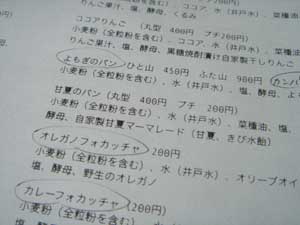 りんご果汁、塩、酵母、くるみ
ココアりんご （丸型 400円 プチ200円）
小麦粉（全粒粉を含む）、ココア、水（井戸水）、菜種油
りんご果汁、塩、酵母、黒糖焼酎漬け自家製干しりんご
よもぎのパン ひと山 450円 ふた山 900円 カンパ
小麦粉（全粒粉を含む）、水（井戸水）、菜種油、塩、酵母、よ
甘夏のパン （丸型 400円 プチ 200円）
小麦粉（全粒粉を含む）、水（井戸水）、菜種油、塩、
酵母、自家製甘夏マーマレード（甘夏、きび水飴）
オレガノフォカッチャ 200円
小麦粉（全粒粉を含む）、水（井戸水）、オリーブオイ
塩、酵母、野生のオレガノ
カレーフォカッチャ （200円）
小麦粉（全粒粉を含む）